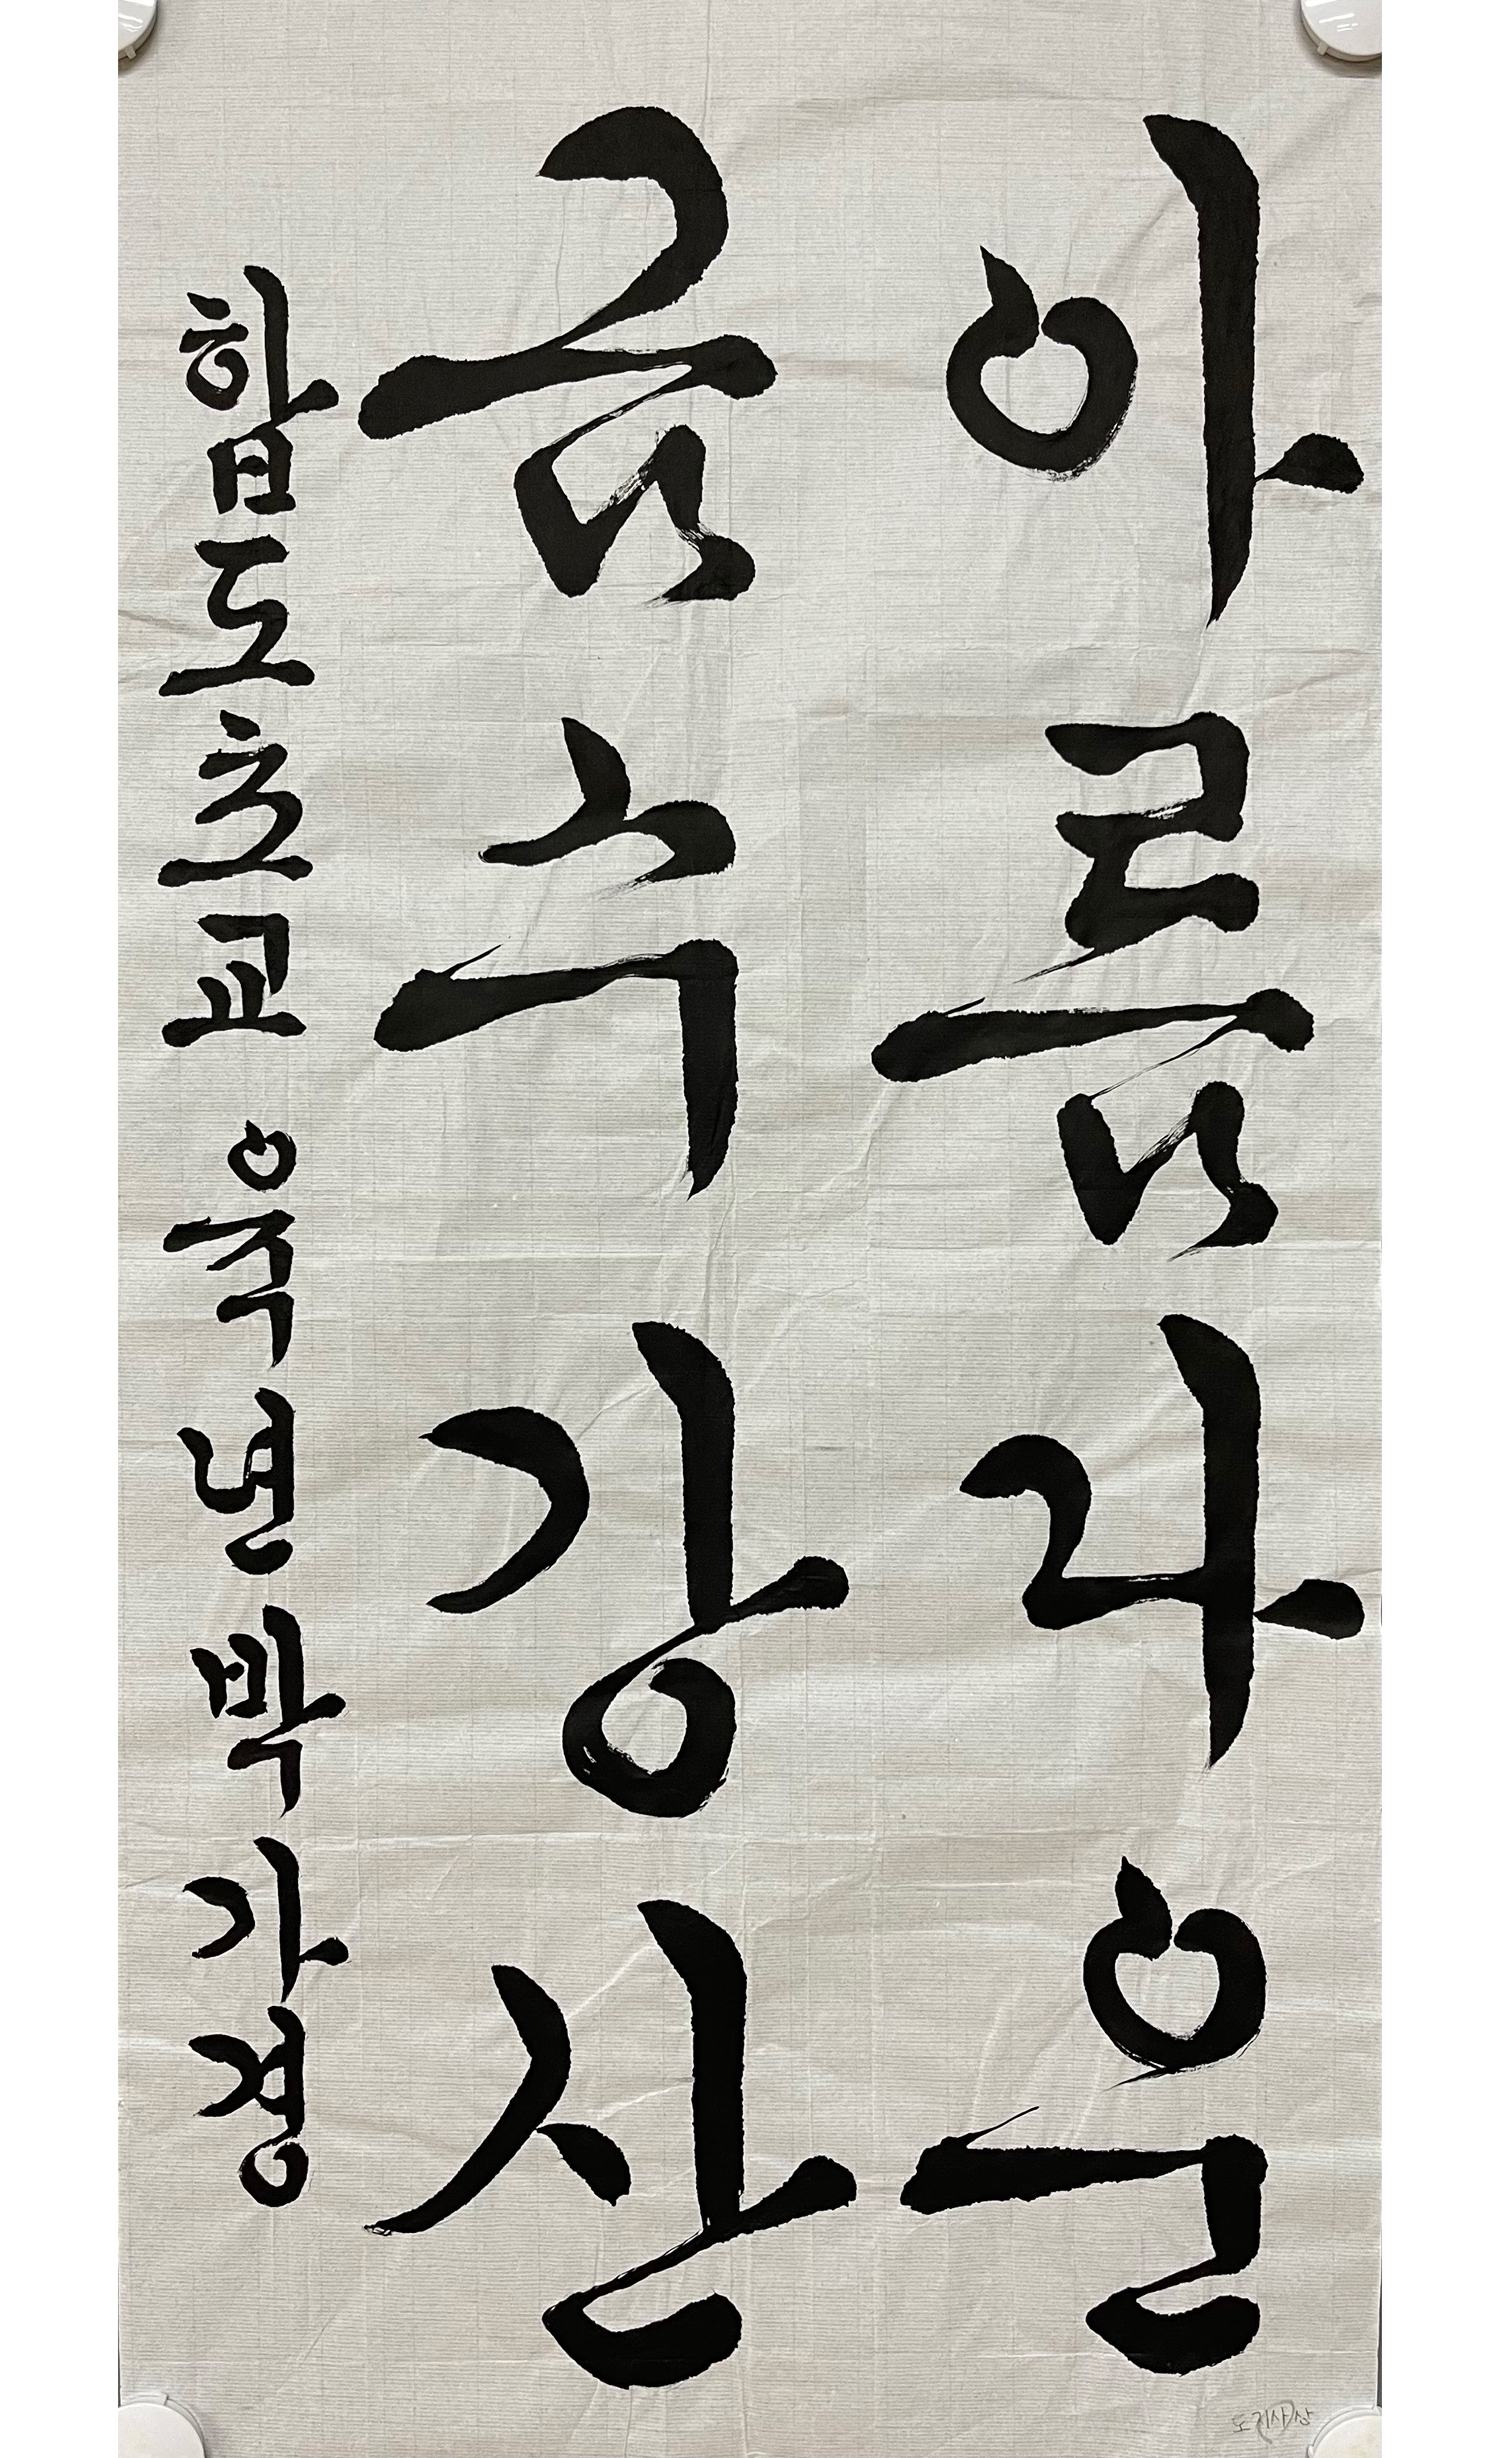 아름다운
금수강산
합도초교 육년 박가경
도지사상